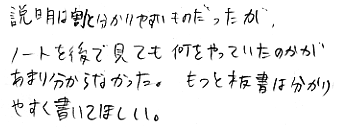 説明は割と分かりやすいものだったが、
ノートを後で見ても何をやっていたのかが
あまり分からなかった。もっと板書は分かり
やすく書いてほしい。